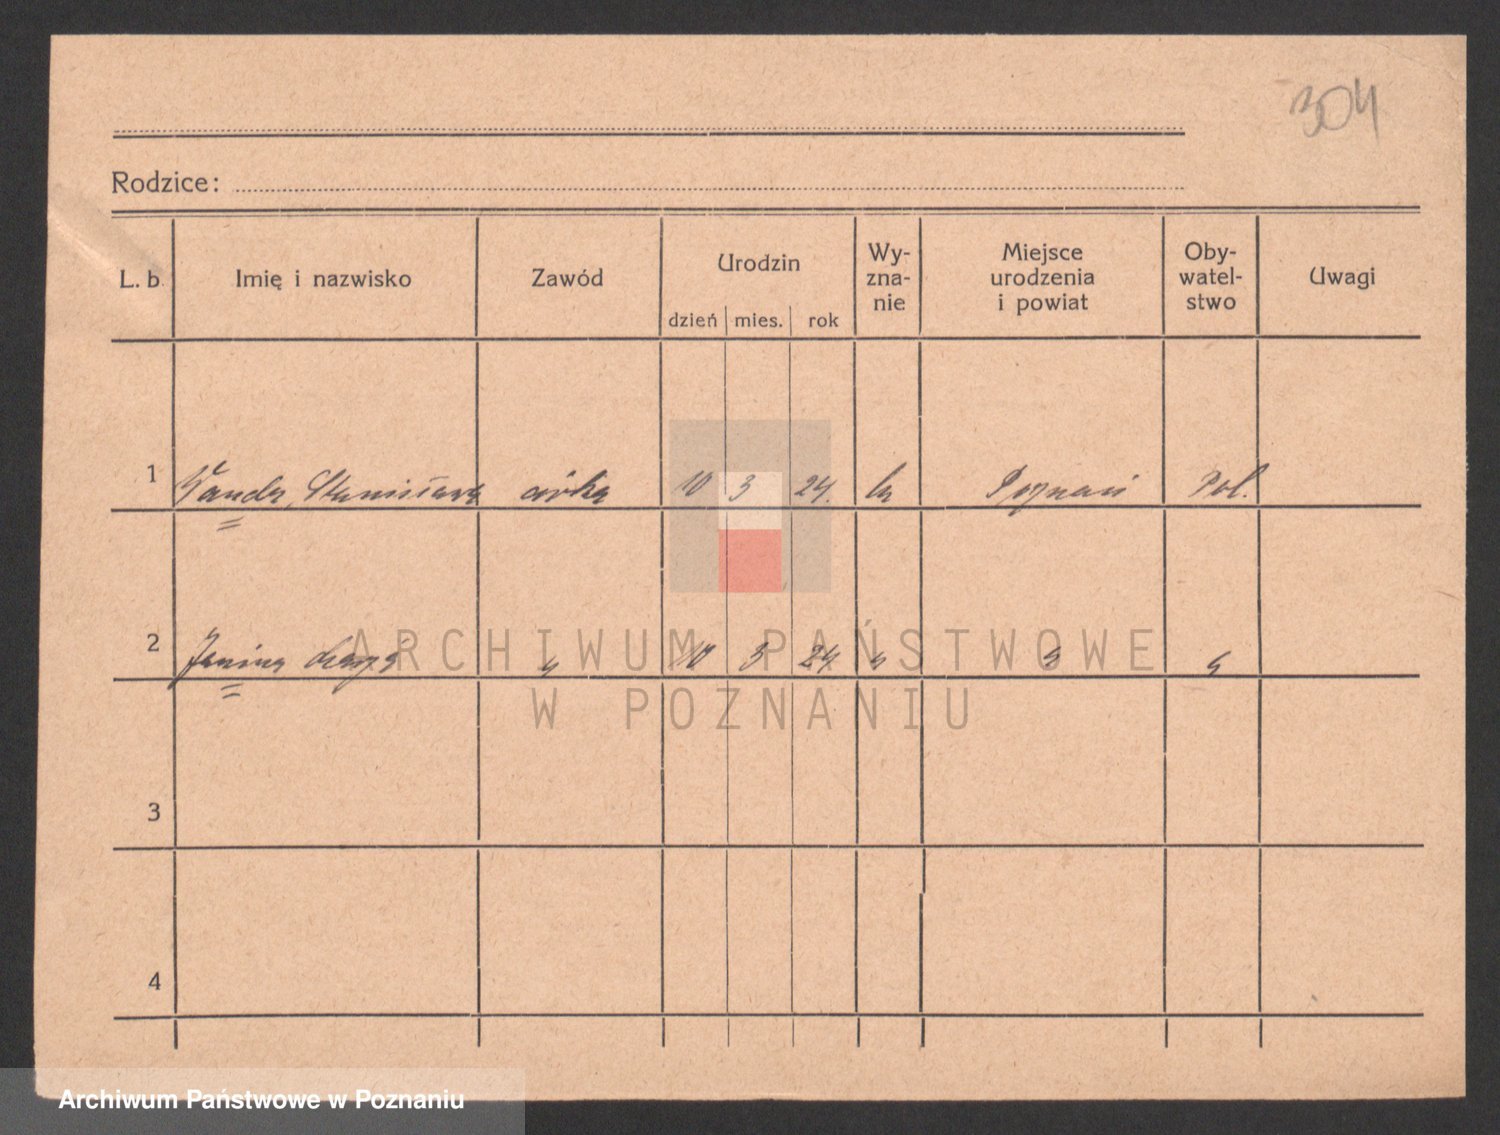 304
Rodzice:
L. b. Imię i nazwisko Zawód Urodzin dzień mies. rok Wy-zna-nie Miejsce urodzenia i powiat Oby-watel-stwo Uwagi
1 Wanda, Stanisława córka 10 3 24. Poznań Pol.
2 Janina " 10 3 24. " " "
ARCHIWUM PAŃSTWOWE
W POZNANIU
3
4
Archiwum Państwowe w Poznaniu